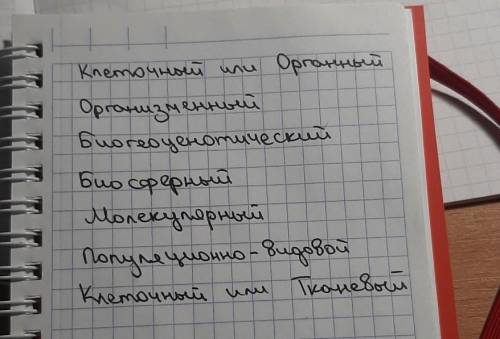 Клеточный или Органный
Организменный
Биогеоценотический
Биосферный
Молекулярный
Популяционно-видовой
Клеточный или Тканевый